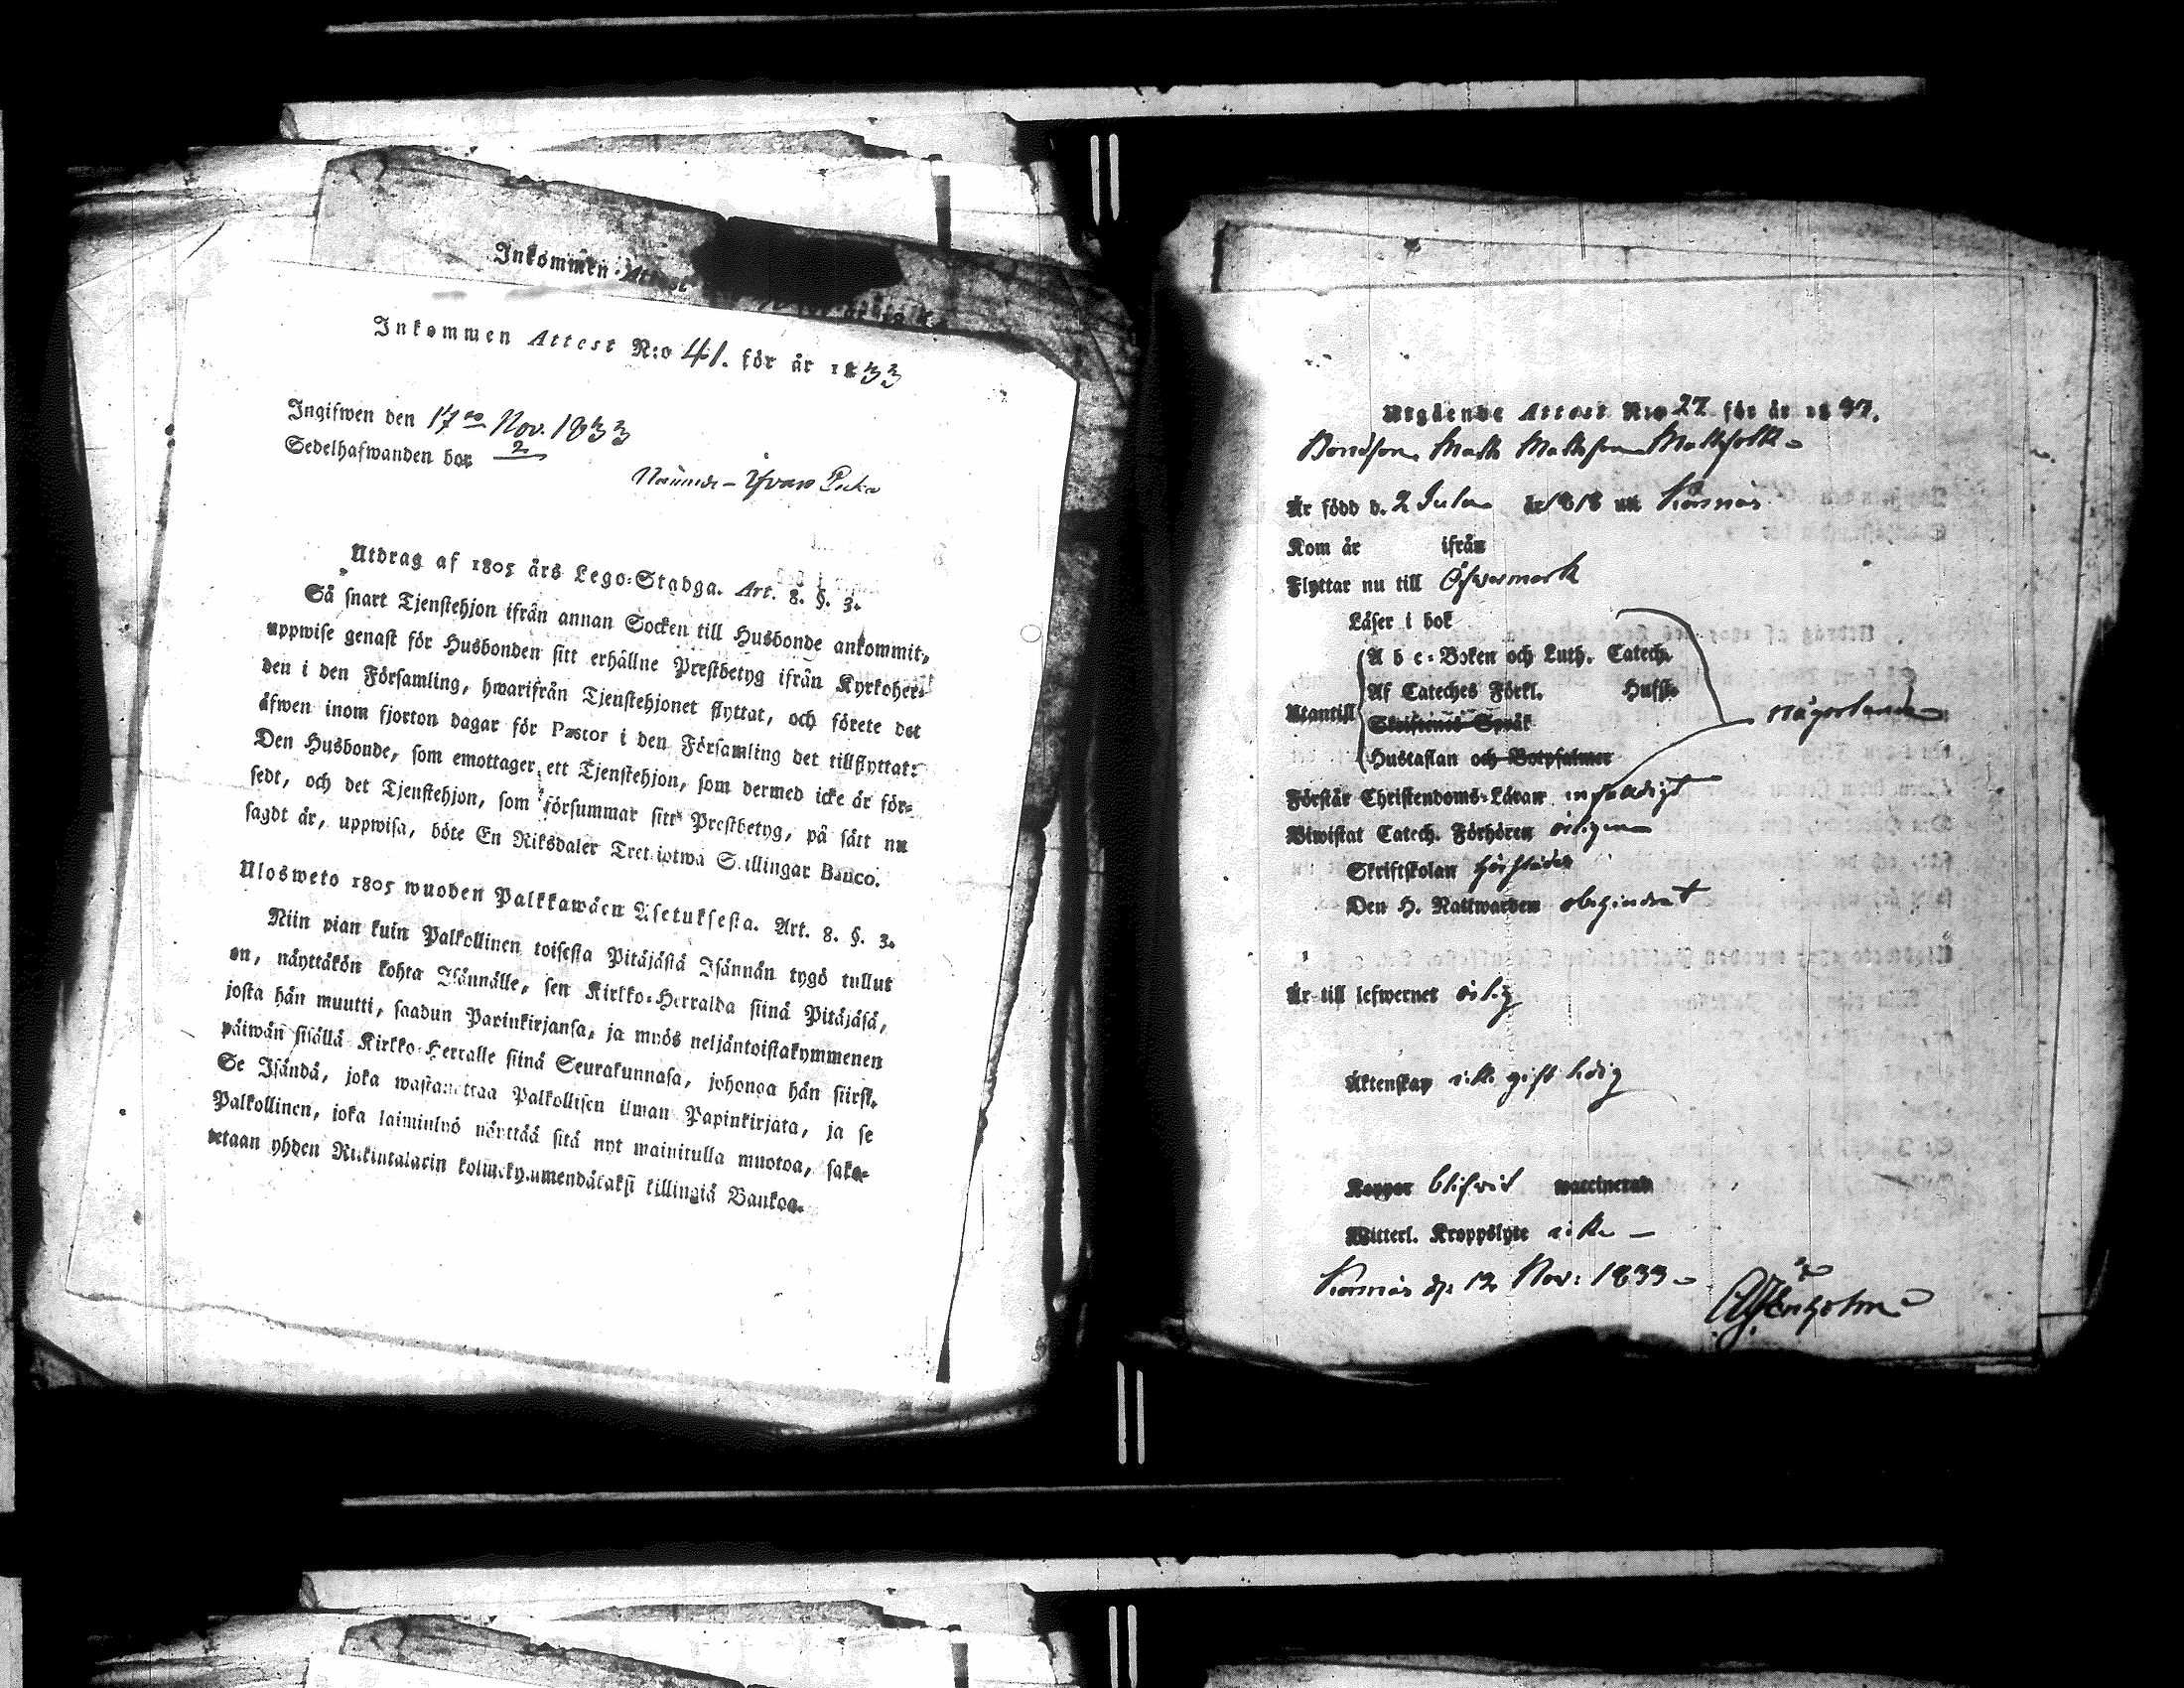 Inkommen Attest
Inkommen Attest N:o 41. för år 1833
Ingifwen den 17de Nov. 1833
Sedelhafwanden bor 2
Utdrag af 1805 års Lego-Stadga. Art. 8. §. 3.
Så snart Tjenstehjon ifrån annan Socken till Husbonde ankommit,
uppwise genast för Husbonden sitt erhållne Prestbetyg ifrån Kyrkoher-
den i den Församling, hwarifrån Tjenstehjonet flyttat, och förete det
äfwen inom fjorton dagar för Pastor i den Församling det tillflyttat:
Den Husbonde, som emottager ett Tjenstehjon, som dermed icke är för-
sedt, och det Tjenstehjon, som försummar sitt Prestbetyg, på sått nu
sagdt är, uppwisa, böte En Riksdaler Trettiotwå Skillingar Banco.
Ulosweto 1805 wuoden Palkkawäen Asetuksesta. Art. 8. §. 3.
Niin pian kuin Palkollinen toisesta Pitäjästä Isännän tygö tullut
on, näyttäkön kohta Isännälle, sen Kirkko-Herralda siinä Pitäjäsä,
josta hän muutti, saadun Papinkirjansa, ja myös neljäntoistakymmenen
päiwän sisällä Kirkko-Herralle siinä Seurakunnasa, johonga hän siirsi.
Se Isändä, joka wastanottaa Palkollisen ilman Papinkirjata, ja se
Palkollinen, joka laiminlyö näyttää sitä nyt mainitulla muotoa, sako-
tetaan yhden Riikintalarin kolmekymmendäkaksi killingiä Bankoa.
Utgående Attest N:o 27 för år 1833.
Bondson Matts Mattsson
Är född d. 2 Jula år 1818 uti Korsnäs
Kom år ifrån
Flyttar nu till Öfvermark
Läser i bok
A b c-Boken och Luth. Catech.
Af Cateches Förkl. Husst.
Utantill
Skriftenes Språk
Hustaflan och Botpsalmer
någorlunda
Förstår Christendoms-Läran enfaldigt
Biwistat Catech. Förhören årligen
Skriftskolan
Den H. Nattwarden obehindrat
Är till lefwernet ärlig
Äktenskap icke gift ledig
Koppor blifvit waccinerad
Witterl. Kroppslyte icke –
Korsnäs d. 12 Nov: 1833